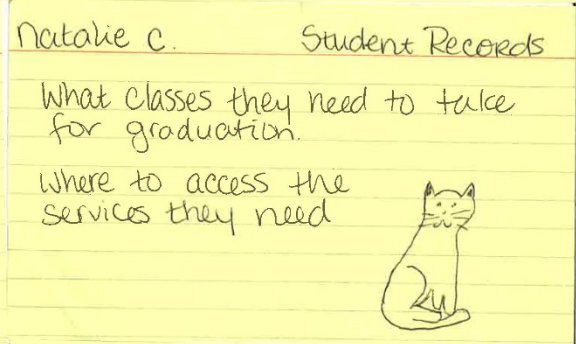 Natalie C. Student Records
What classes they need to take
for graduation.
Where to access the
services they need